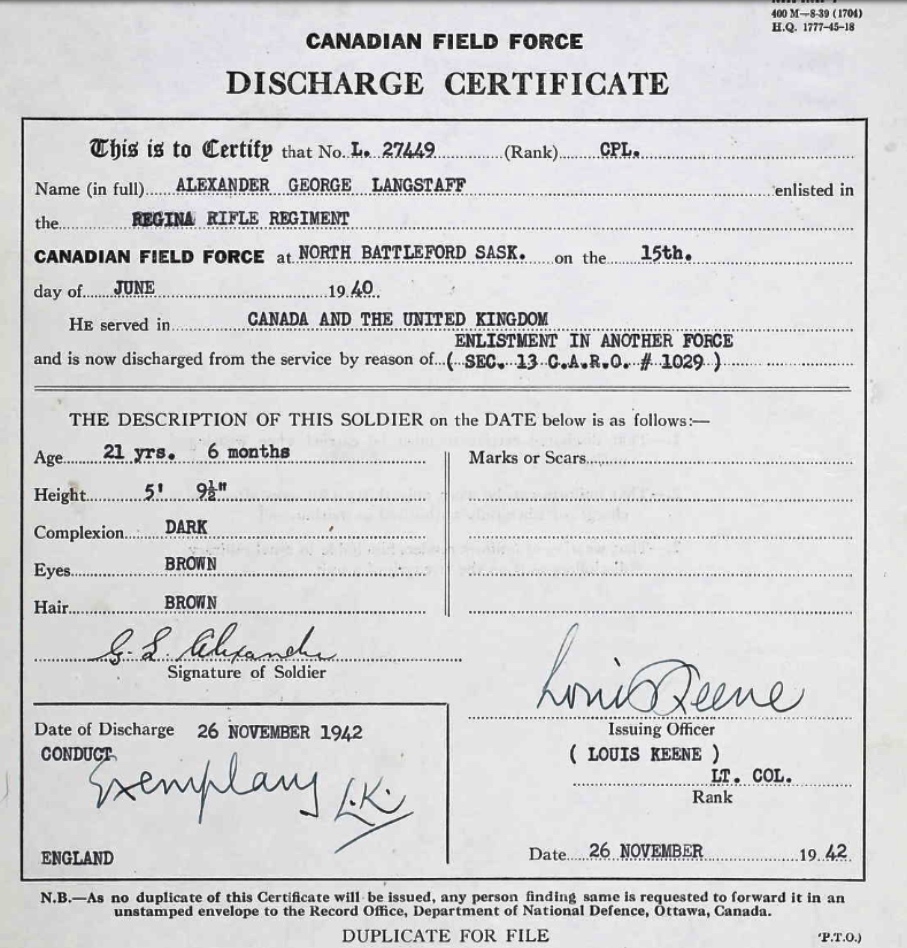 400 M—8-39 (1704)
H.Q. 1777-45-18
CANADIAN FIELD FORCE
DISCHARGE CERTIFICATE
This is to Certify that No. L. 27449 (Rank) CPL.
Name (in full) ALEXANDER GEORGE LANGSTAFF enlisted in
the REGINA RIFLE REGIMENT
CANADIAN FIELD FORCE at NORTH BATTLEFORD SASK. on the 15th.
day of JUNE 19 40.
HE served in CANADA AND THE UNITED KINGDOM
ENLISTMENT IN ANOTHER FORCE
and is now discharged from the service by reason of ( SEC. 13 C.A.R.O. # 1029 )
THE DESCRIPTION OF THIS SOLDIER on the DATE below is as follows:—
Age 21 yrs. 6 months
Height 5' 9½"
Complexion DARK
Eyes BROWN
Hair BROWN
Marks or Scars
G. L. Alexander
Signature of Soldier
Date of Discharge 26 NOVEMBER 1942
CONDUCT
Exemplary L.K.
ENGLAND
Louis Keene
Issuing Officer
( LOUIS KEENE )
LT. COL.
Rank
Date 26 NOVEMBER 19 42.
N.B.—As no duplicate of this Certificate will be issued, any person finding same is requested to forward it in an
unstamped envelope to the Record Office, Department of National Defence, Ottawa, Canada.
DUPLICATE FOR FILE
P.T.O.)